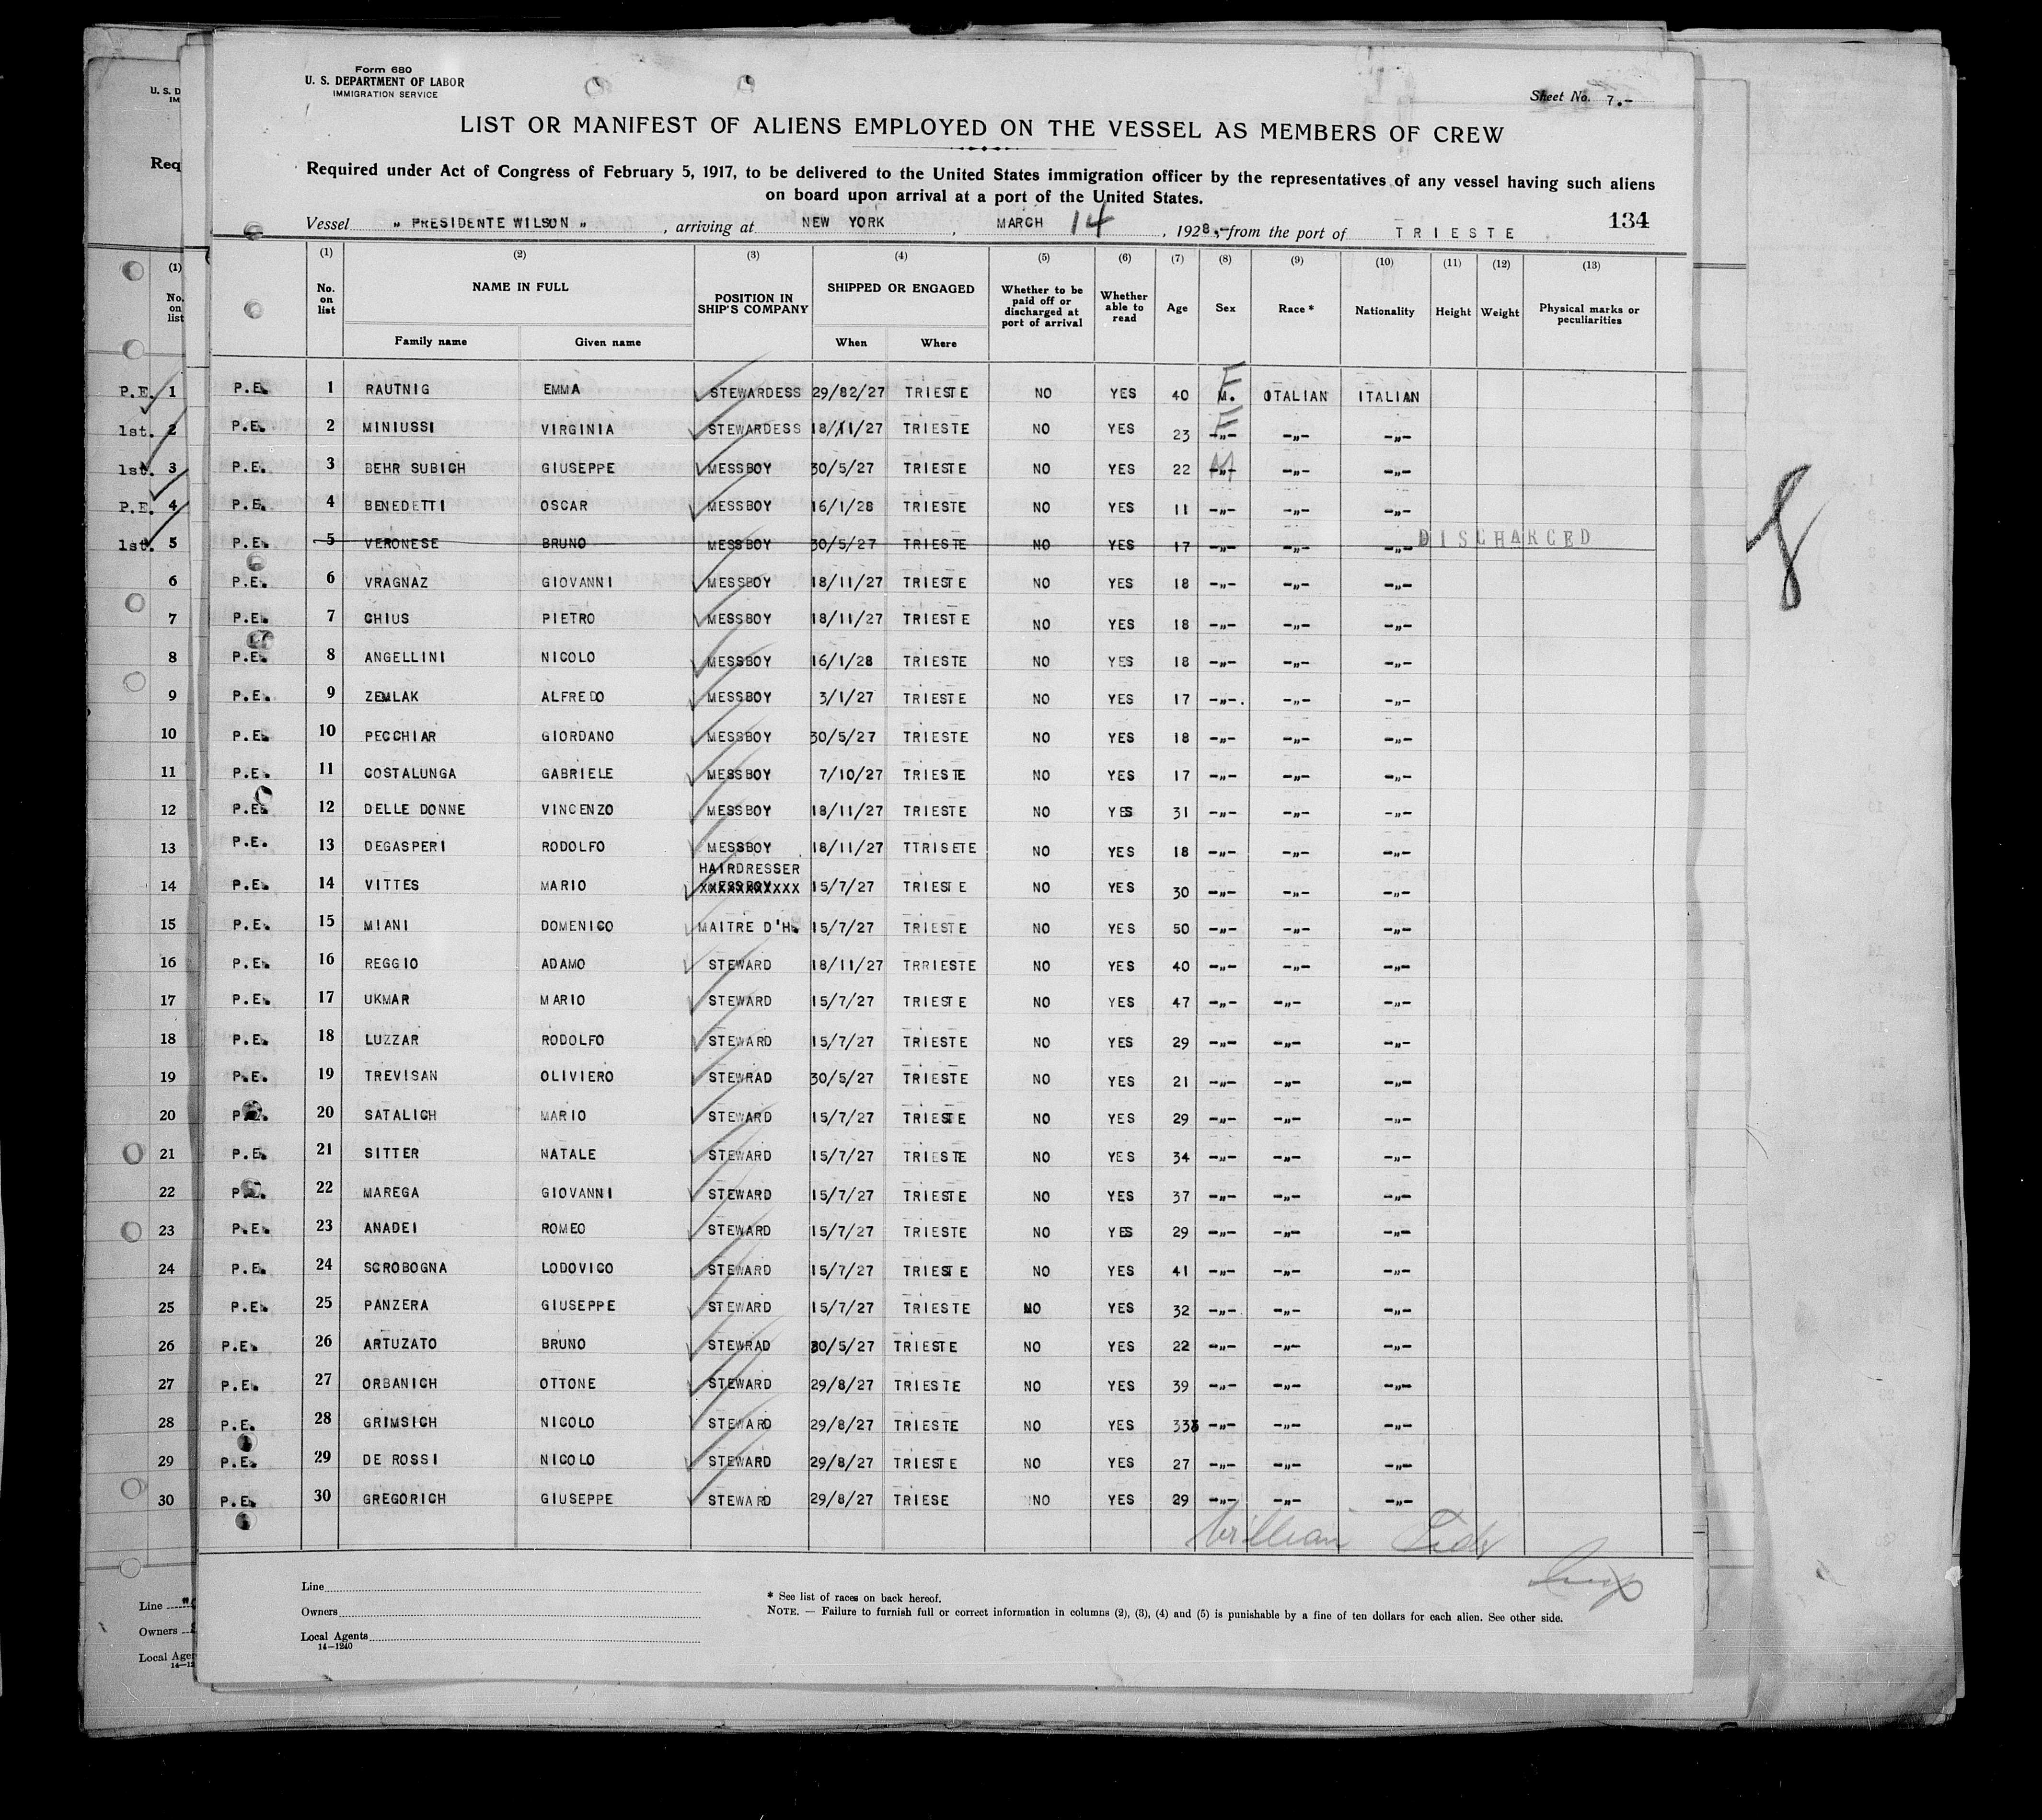 Form 680
U. S. DEPARTMENT OF LABOR
IMMIGRATION SERVICE
Sheet No. 7.-
LIST OR MANIFEST OF ALIENS EMPLOYED ON THE VESSEL AS MEMBERS OF CREW
Required under Act of Congress of February 5, 1917, to be delivered to the United States immigration officer by the representatives of any vessel having such aliens
on board upon arrival at a port of the United States.
Vessel „ PRESIDENTE WILSON „ , arriving at NEW YORK , MARCH 14 , 1928,- from the port of TRIESTE 134
(1) (2) (3) (4) (5) (6) (7) (8) (9) (10) (11) (12) (13)
No. on list NAME IN FULL Family name Given name POSITION IN SHIP'S COMPANY SHIPPED OR ENGAGED When Where Whether to be paid off or discharged at port of arrival Whether able to read Age Sex Race * Nationality Height Weight Physical marks or peculiarities
P.E. 1 RAUTNIG EMMA STEWARDESS 29/82/27 TRIESTE NO YES 40 M. F OTALIAN ITALIAN
P.E. 2 MINIUSSI VIRGINIA STEWARDESS 18/11/27 TRIESTE NO YES 23 -„- F -„- -„-
P.E. 3 BEHR SUBICH GIUSEPPE MESSBOY 30/5/27 TRIESTE NO YES 22 -„- M -„- -„-
P.E. 4 BENEDETTI OSCAR MESSBOY 16/1/28 TRIESTE NO YES 11 -„- -„- -„-
P.E. 5 VERONESE BRUNO MESSBOY 30/5/27 TRIESTE NO YES 17 -„- -„- -„- DISCHARGED
P.E. 6 VRAGNAZ GIOVANNI MESSBOY 18/11/27 TRIESTE NO YES 18 -„- -„- -„-
P.E. 7 CHIUS PIETRO MESSBOY 18/11/27 TRIESTE NO YES 18 -„- -„- -„-
P.E. 8 ANGELLINI NICOLO MESSBOY 16/1/28 TRIESTE NO YES 18 -„- -„- -„-
P.E. 9 ZEMLAK ALFREDO MESSBOY 3/1/27 TRIESTE NO YES 17 -„-. -„- -„-
P.E. 10 PECCHIAR GIORDANO MESSBOY 30/5/27 TRIESTE NO YES 18 -„- -„- -„-
P.E. 11 COSTALUNGA GABRIELE MESSBOY 7/10/27 TRIESTE NO YES 17 -„- -„- -„-
P.E. 12 DELLE DONNE VINCENZO MESSBOY 18/11/27 TRIESTE NO YES 31 -„- -„- -„-
P.E. 13 DEGASPERI RODOLFO MESSBOY 18/11/27 TTRISETE NO YES 18 -„- -„- -„-
HAIRDRESSER
P.E. 14 VITTES MARIO MESSBOY 15/7/27 TRIESTE NO YES 30 -„- -„- -„-
P.E. 15 MIANI DOMENICO MAITRE D'H. 15/7/27 TRIESTE NO YES 50 -„- -„- -„-
P.E. 16 REGGIO ADAMO STEWARD 18/11/27 TRRIESTE NO YES 40 -„- -„- -„-
P.E. 17 UKMAR MARIO STEWARD 15/7/27 TRIESTE NO YES 47 -„- -„- -„-
P.E. 18 LUZZAR RODOLFO STEWARD 15/7/27 TRIESTE NO YES 29 -„- -„- -„-
P.E. 19 TREVISAN OLIVIERO STEWRAD 30/5/27 TRIESTE NO YES 21 -„- -„- -„-
P.E. 20 SATALICH MARIO STEWARD 15/7/27 TRIESTE NO YES 29 -„- -„- -„-
P.E. 21 SITTER NATALE STEWARD 15/7/27 TRIESTE NO YES 34 -„- -„- -„-
P.E. 22 MAREGA GIOVANNI STEWARD 15/7/27 TRIESTE NO YES 37 -„- -„- -„-
P.E. 23 ANADEI ROMEO STEWARD 15/7/27 TRIESTE NO YES 29 -„- -„- -„-
P.E. 24 SCROBOGNA LODOVICO STEWARD 15/7/27 TRIESTE NO YES 41 -„- -„- -„-
P.E. 25 PANZERA GIUSEPPE STEWARD 15/7/27 TRIESTE NO YES 32 -„-. -„- -„-
P.E. 26 ARTUZATO BRUNO STEWRAD 30/5/27 TRIESTE NO YES 22 -„- -„- -„-
P.E. 27 ORBANICH OTTONE STEWARD 29/8/27 TRIESTE NO YES 39 -„- -„- -„-
P.E. 28 GRIMSICH NICOLO STEWARD 29/8/27 TRIESTE NO YES 333 -„- -„- -„-
P.E. 29 DE ROSSI NICOLO STEWARD 29/8/27 TRIESTE NO YES 27 -„- -„- -„-
P.E. 30 GREGORICH GIUSEPPE STEWARD 29/8/27 TRIESE NO YES 29 -„- -„- -„-
William
Line
Owners
Local Agents
14—1240
* See list of races on back hereof.
NOTE. — Failure to furnish full or correct information in columns (2), (3), (4) and (5) is punishable by a fine of ten dollars for each alien. See other side.
U. S. D
IM
Req
(1)
No. on list
P.E. 1
1st. 2
1st. 3
P.E. 4
1st. 5
6
7
8
9
10
11
12
13
14
15
16
17
18
19
20
21
22
23
24
25
26
27
28
29
30
Line
Owners
Local Agen
14—12
8